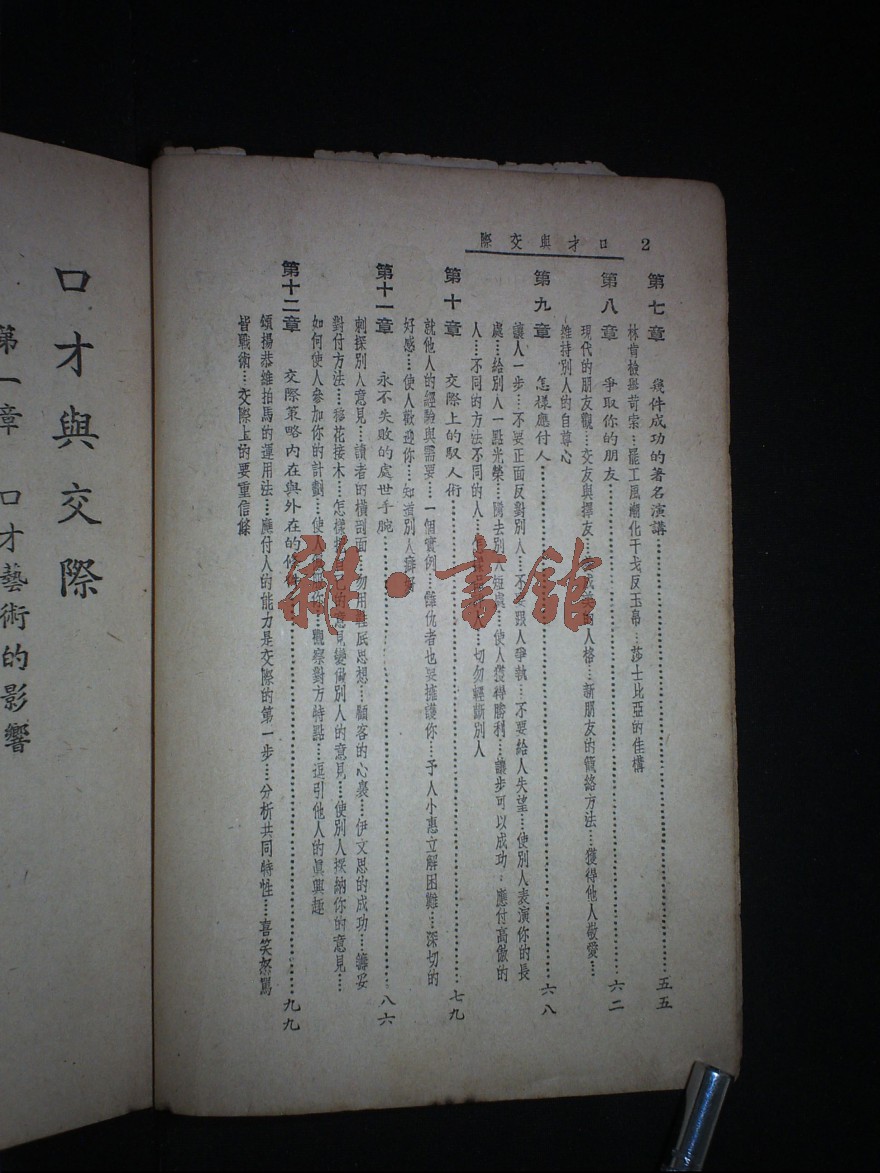 2 口才與交際
第七章 幾件成功的著名演講……五五
林肯檢舉苛宗…罷工風潮化干戈反玉帛…莎士比亞的佳構
第八章 爭取你的朋友……六二
現代的朋友觀…交友與擇友…的人格…新朋友的籠絡方法…獲得他人敬愛…
維持別人的自尊心
第九章 怎樣應付人……六八
讓人一步…不要正面反對別人…不要跟人爭執…不要給人失望…使別人表演你的長
處…給別人一點光榮…隱去別人短處…使人獲得勝利…讓步可以成功…應付高傲的
人…不同的方法不同的人…切勿輕斷別人
第十章 交際上的馭人術……七九
就他人的經驗與需要…一個實例…讎仇者也要擁護你…予人小惠立解困難…深切的
好感…使人歡迎你…知道別人癖好
第十一章 永不失敗的處世手腕……八六
刺探別人意見…讀者的橫剖面…勿用思想…顧客的心裏…伊文思的成功…籌妥
對付方法…移花接木…怎樣的意見變做別人的意見…使別人採納你的意見…
如何使人參加你的計劃…使人你…觀察對方特點…逗引他人的眞興趣
第十二章 交際策略內在與外在的……九九
頌揚恭維拍馬的運用法…應付人的能力是交際的第一步…分析共同特性…喜笑怒罵
皆戰術…交際上的要重信條
口才與交際
第一章 口才藝術的影響
雜·書館